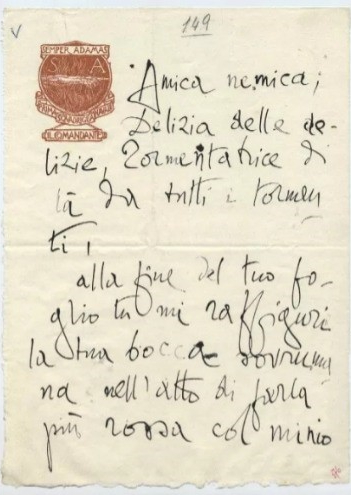 149
SEMPER ADAMAS
S A
IL COMANDANTE
Amica nemica;
Delizia delle de-
lizie, Tormentatrice di
là da tutti i tormen
ti,
alla fine del tuo fo-
glio tu mi raffiguri
la tua bocca sovruma
na nell'atto di farla
più rossa col minio